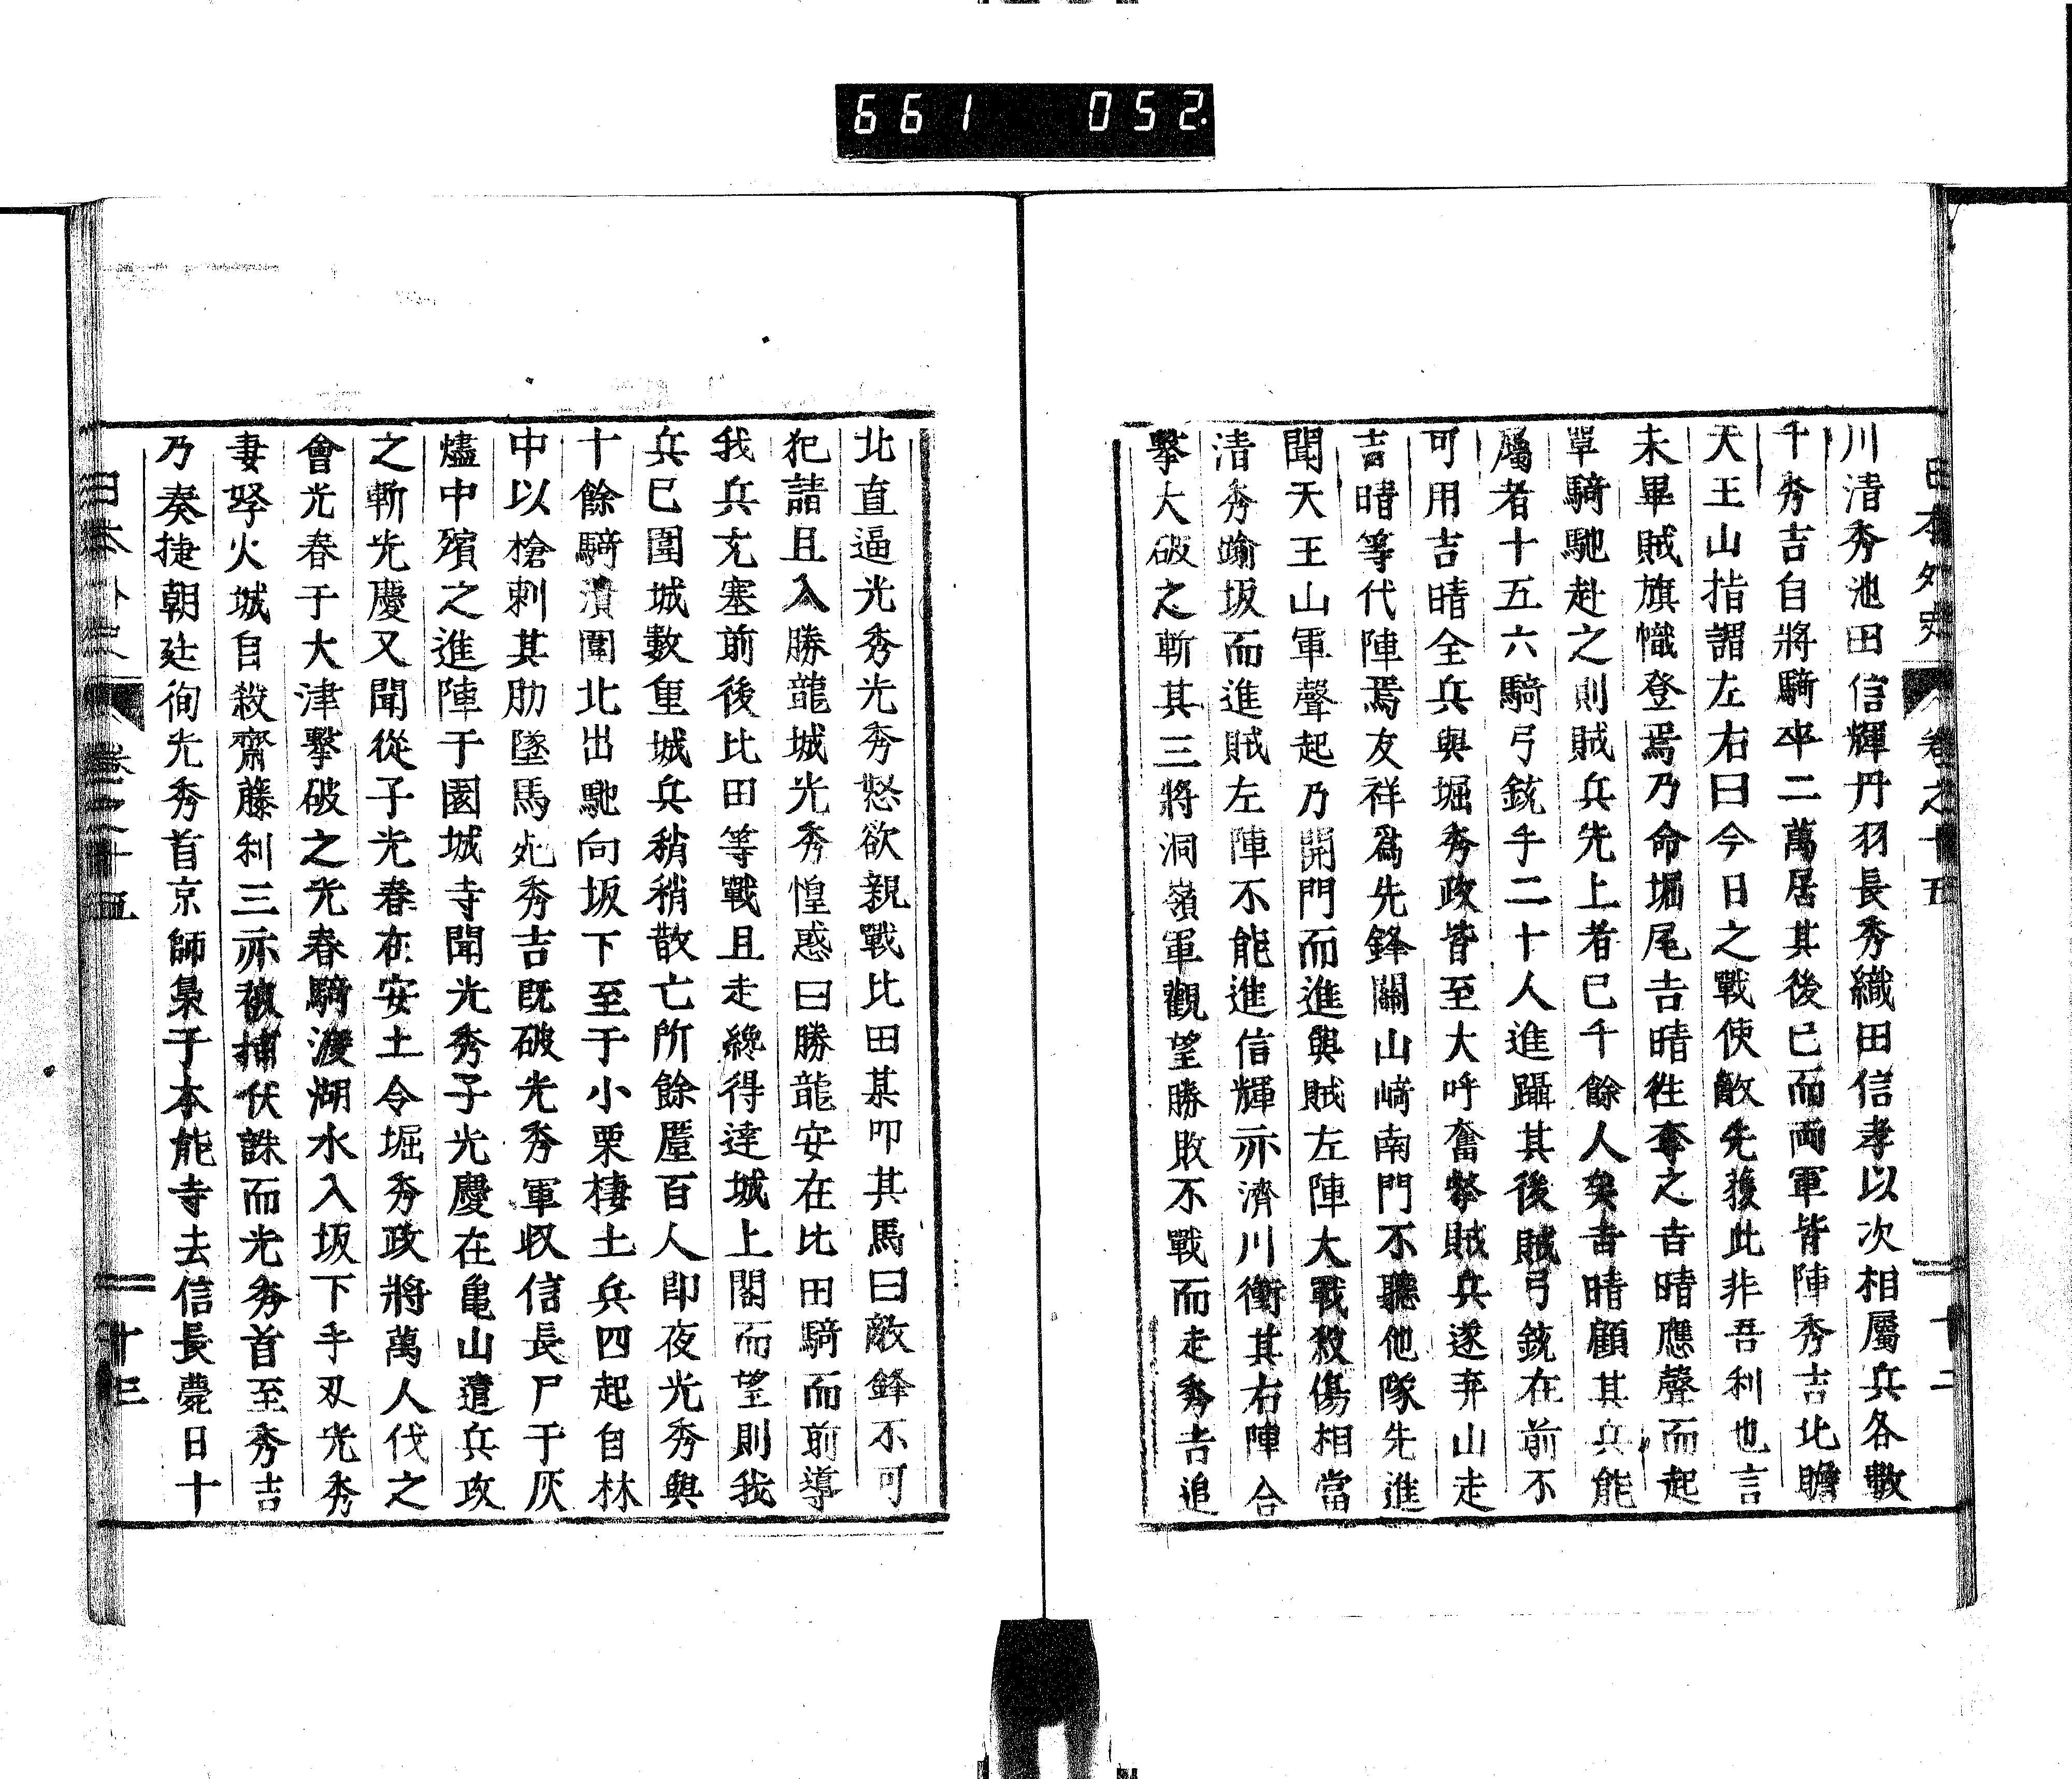 661 052
日本外史 卷之十五 十二
川清秀池田信輝丹羽長秀織田信孝以次相屬兵各數
千秀吉自將騎卒二萬居其後已而兩軍皆陣秀吉北瞻
天王山指謂左右曰今日之戰使敵先獲此非吾利也言
未畢賊旗幟登焉乃命堀尾吉晴徃奪之吉晴應聲而起
單騎馳赴之則賊兵先上者已千餘人矣吉晴顧其兵能
屬者十五六騎弓銃手二十人進躡其後賊弓銃在前不
可用吉晴全兵與堀秀政皆至大呼奮擊賊兵遂弃山走
吉晴等代陣焉友祥爲先鋒關山﨑南門不聽他隊先進
聞天王山軍聲起乃開門而進與賊左陣大戰殺傷相當
清秀踰坂而進賊左陣不能進信輝亦濟川衝其右陣合
擊大破之斬其三將洞嶺軍觀望勝敗不戰而走秀吉追
北直逼光秀光秀怒欲親戰比田某叩其馬曰敵鋒不可
犯請且入勝龍城光秀惶惑曰勝龍安在比田騎而前導
我兵充塞前後比田等戰且走纔得達城上閣而望則我
兵已圍城數重城兵稍稍散亡所餘厪百人即夜光秀與
十餘騎潰圍北出馳向坂下至于小栗棲土兵四起自林
中以槍刺其肋墜馬死秀吉既破光秀軍収信長尸于灰
燼中殯之進陣于園城寺聞光秀子光慶在亀山遣兵攻
之斬光慶又聞從子光春在安土令堀秀政將萬人伐之
會光春于大津擊破之光春騎渡湖水入坂下手刃光秀
妻孥火城自殺齋藤利三亦被捕伏誅而光秀首至秀吉
乃奏捷朝廷徇光秀首京師梟于本能寺去信長薨日十
日本外史 卷之十五 十三